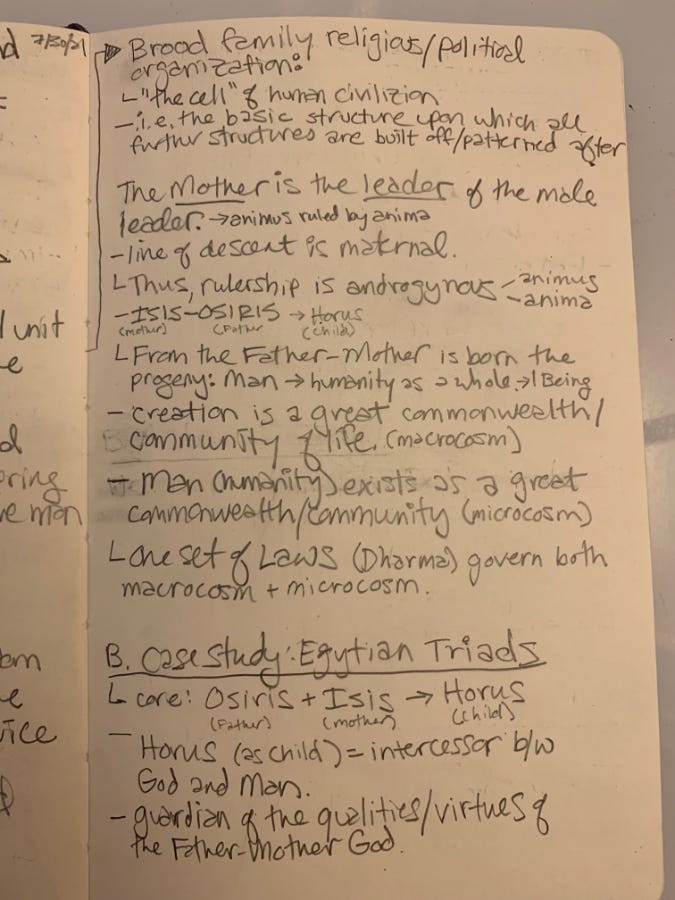 7/30/21
Brood family religious/political
organization:
"the cell" of human civilizion
- i.e. the basic structure upon which all
further structures are built off/patterned after
The Mother is the leader of the male
leader. → animus ruled by anima
- line of descent is maternal.
Thus, rulership is androgynous - animus
- anima
- ISIS - OSIRIS → Horus
(mother) (Father (child)
From the Father-Mother is born the
progeny: Man → humanity as a whole → 1 Being
- creation is a great commonwealth/
community of life. (macrocosm)
- man (humanity) exists as a great
commonwealth/community (microcosm)
one set of Laws (Dharma) govern both
macrocosm + microcosm.
B. Case study: Egytian Triads
core: Osiris + Isis → Horus
(Father) (mother) (child)
- Horus (as child) = intercessor b/w
God and Man.
- guardian of the qualities/virtues of
the Father-Mother God.
unit
e
d
ering
e man
om
e
vice